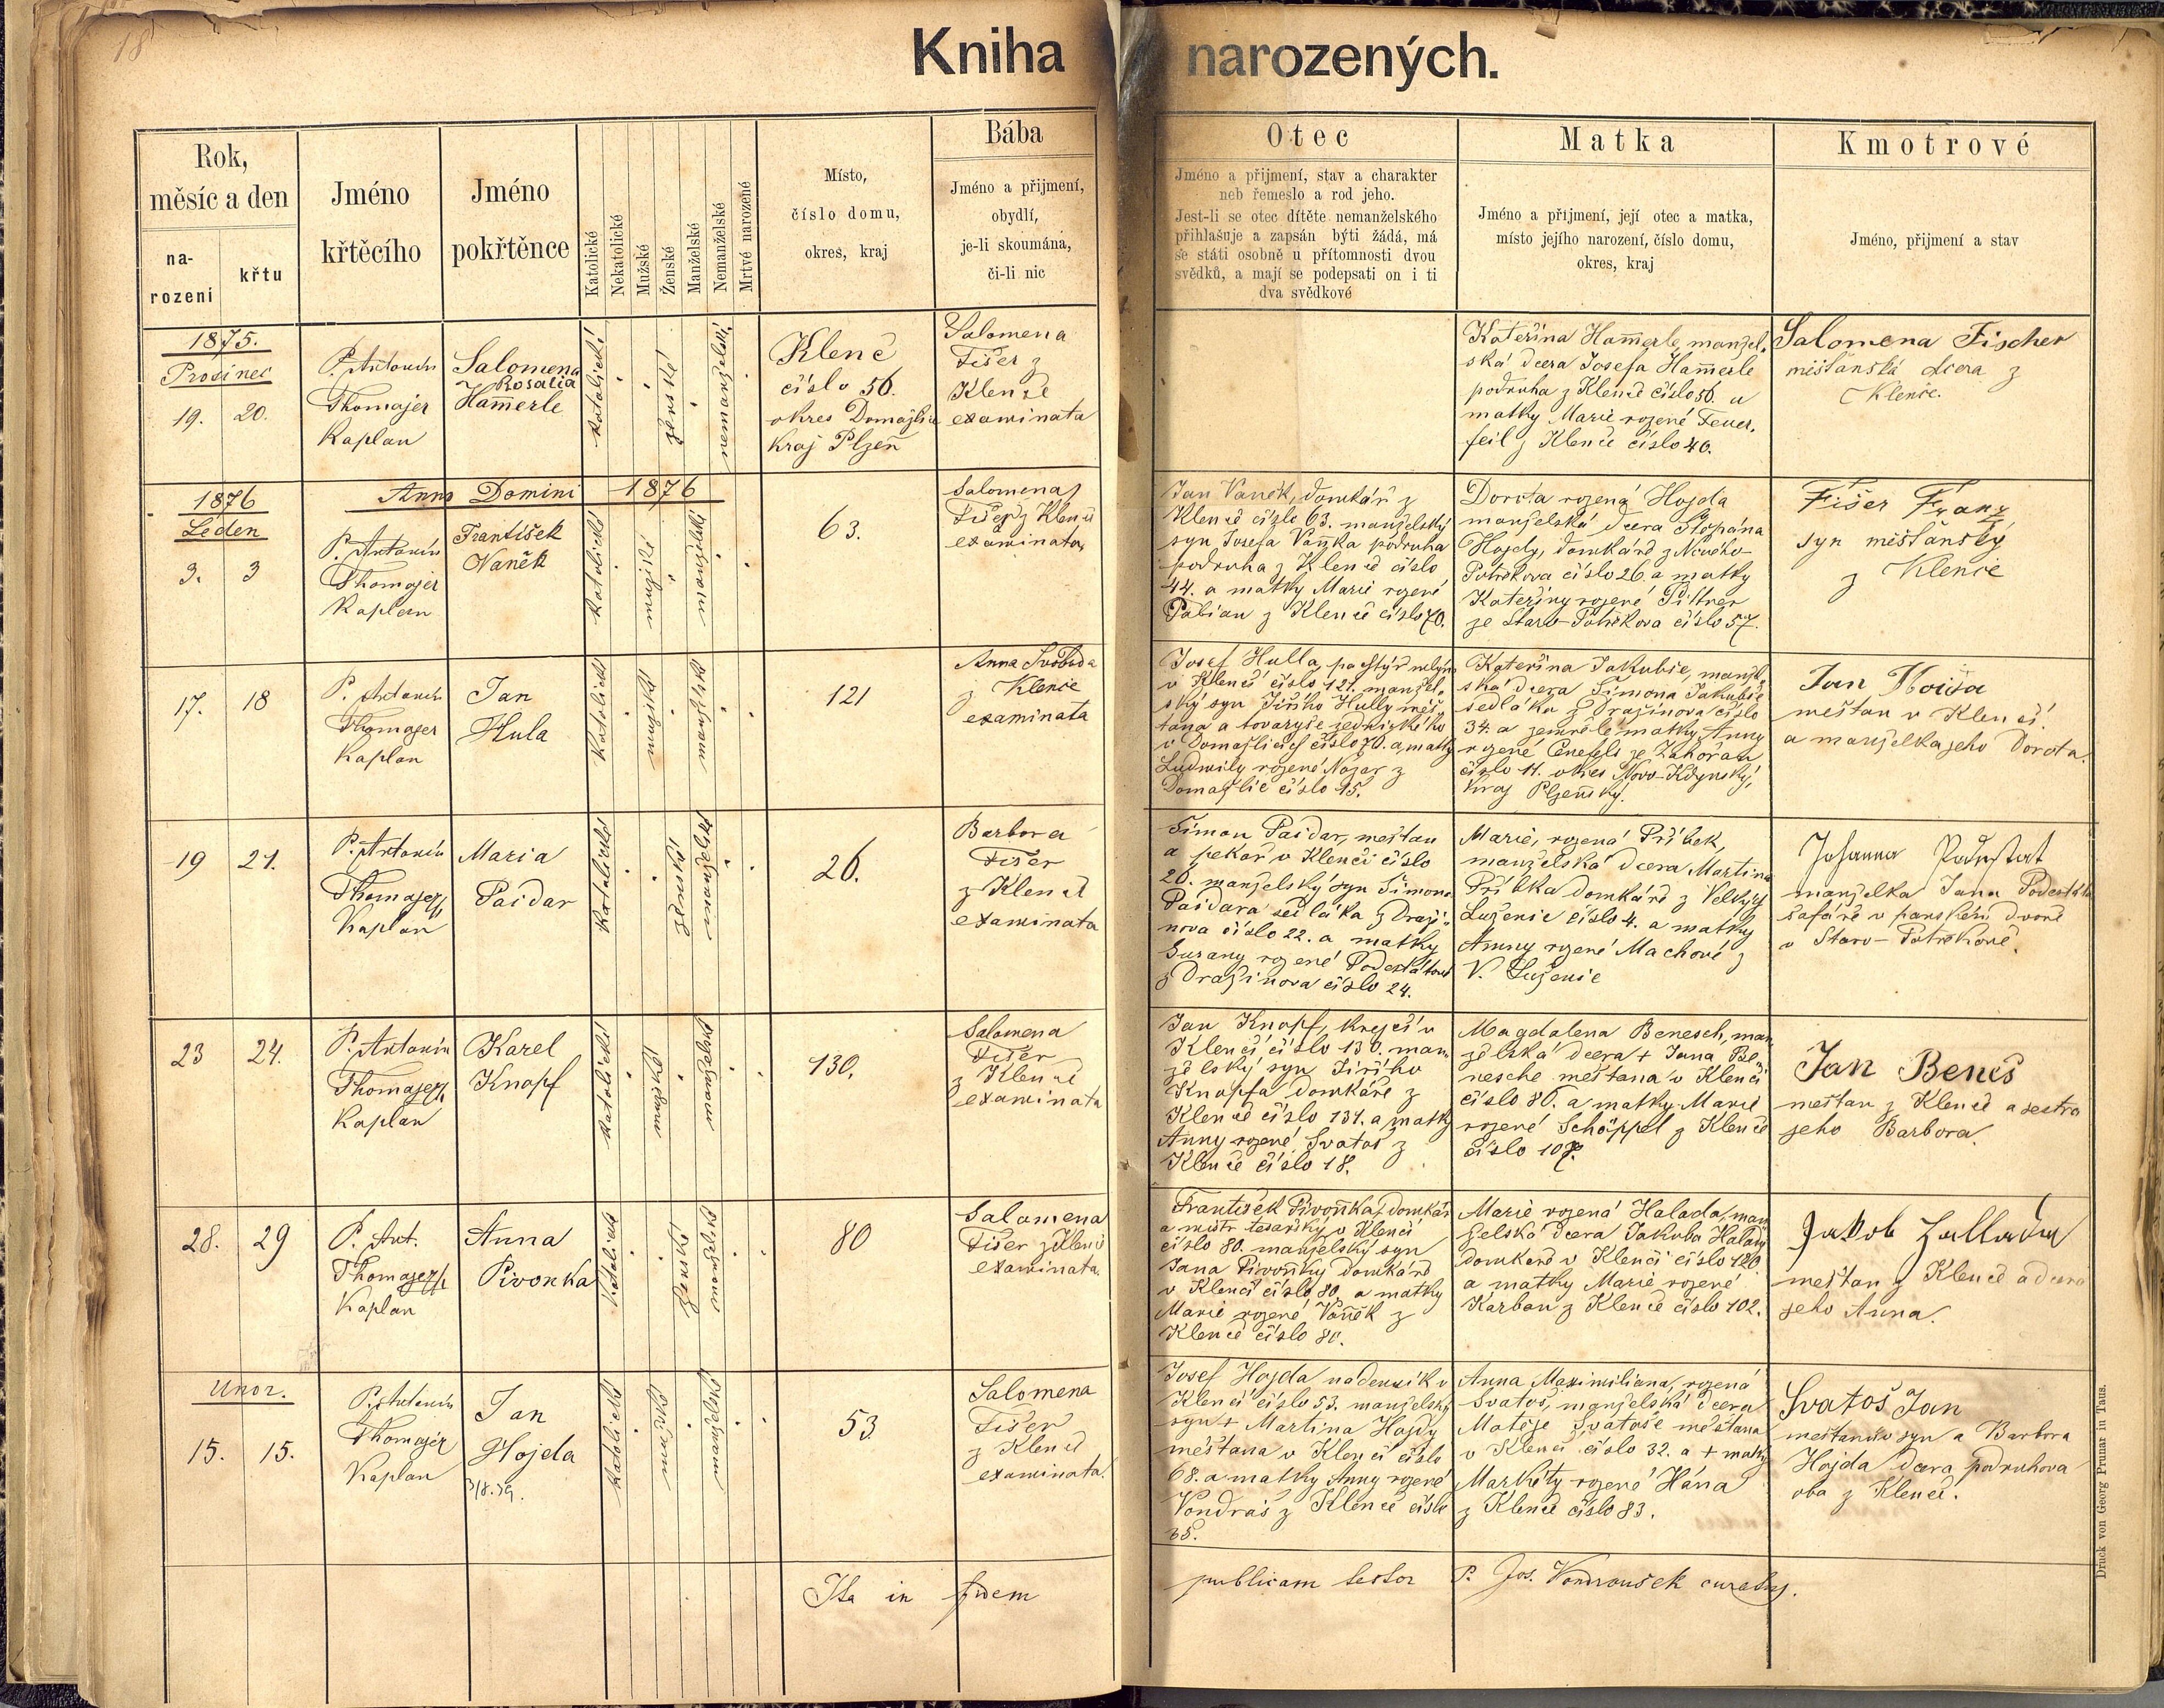 18
Kniha narozených.
Rok,
měsíc a den
na-
rozeni
křtu
Jméno
křtěcího
Jméno
pokřtěnce
Katolické
Nekatolické
Mužské
Ženské
Manželské
Nemanželské
Mrtvé narozené
Místo,
číslo domu,
okres, kraj
Bába
Jméno a přijmení,
obydlí,
je-li skoumána,
či-li nic
Otec
Jméno a přijmení, stav a charakter
neb řemeslo a rod jeho.
Jest-li se otec dítěte nemanželského
přihlašuje a zapsán býti žádá, má
se státi osobně u přítomnosti dvou
svědků, a mají se podepsati on i ti
dva svědkové
Matka
Jméno a přijmení, její otec a matka,
místo jejího narození, číslo domu,
okres, kraj
Kmotrové
Jméno, přijmení a stav
1875.
Prosinec
19. 20.
P. Antonín
Thomajer
Kaplan
Salomena
Rosalia
Ham̄erle
katolické
ženské
nemanželské
Klenč
číslo 56.
okres Domažlice
Kraj Plzeň
Salomena
Fišer z
Klenče
examinata
Kateřina Ham̄erle, manžel.
ská dcera Josefa Ham̄erle
podruha z Klenče číslo 56. a
matky Marie rozené Feuer.
feil z Klenče číslo 40.
Salomena Fischer
měšťanská dcera z
Klenče.
1876
Leden
Anno Domini 1876
3. 3
P. Antonín
Thomajer
Kaplan
František
Vaněk
katolické
mužské
manželské
63.
Salomena
Fišer z Klenče
examinata
Jan Vaněk, domkář z
Klenče číslo 63. manželský
syn Josefa Vaňka podruha
podruha z Klenče číslo
44. a matky Marie rozené
Pabian z Klenče číslo 70.
Dorota rozená Hojda
manželská dcera Štěpána
Hojdy, domkáře z Nového
Potrěkova číslo 26. a matky
Kateřiny rozené Pittner
ze Staro-Potrěkova číslo 57.
Fišer Franz
syn měšťanský
z Klenče
17. 18
P. Antonín
Thomajer
Kaplan
Jan
Hula
katolické
mužské
manželské
121
Anna Svoboda
z Klenče
examinata
Josef Hulla, pachtýř mlýna
v Klenčí číslo 121. manžel.
ský syn Jiřího Hully měš.
ťana a tovaryše jednického
v Domažlicích číslo 70. a matky
Ludmily rozené Nájar z
Domažlic číslo 15.
Kateřina Jakubie, manžel.
ská dcera Šimona Jakubše
sedláka z Dražinova číslo
34. a zemřelé matky Anny
rozené Cenefels ze Zahořan
číslo 11. okres Novo-Kdynský,
Kraj Plzeňský.
Jan Hoida
měšťan v Klenčí
a manželka jeho Dorota.
19 21.
P. Antonín
Thomajer
Kaplan
Maria
Paidar
katolické
ženské
manželské
26.
Barbora
Fišer
z Klenče
examinata
Šimon Paidar, měšťan
a pekař v Klenčí číslo
26. manželský syn Šimona
Paidara sedláka z Draži-
nova číslo 22. a matky
Suzany rozené Podestátové
z Dražinova číslo 24.
Marie, rozená Přibek,
manželská dcera Martina
Přibka domkáře z Velkých
Luženic číslo 4. a matky
Anny rozené Machové z
V. Luženic
Johanna Podestat
manželka Jana Podestáta
šafáře v panském dvoře
v Staro-Potrěkově.
23 24.
P. Antonín
Thomajer
Kaplan
Karel
Knopf
katolické
mužské
manželské
130.
Salomena
Fišer
z Klenče
examinata
Jan Knopf, krejčí v
Klenčí číslo 130. man.
želský syn Jiřího
Knopfa domkáře z
Klenče číslo 131. a matky
Anny rozené Svatoš z
Klenče číslo 18.
Magdalena Benesch, man
želská dcera + Jana Be.
nesche měšťana v Klenčí
číslo 80. a matky Marie
rozené Schöppel z Klenče
číslo 107.
Jan Beneš
měšťan z Klenče a sestra
jeho Barbora.
28. 29
P. Ant.
Thomajer
Kaplan
Anna
Pivonka
katolické
ženské
manželské
80
Salomena
Fišer z Klenče
examinata.
František Pivoňka, domkář
a mistr tesařský v Klenčí
číslo 80. manželský syn
Jana Pivoňky domkáře
v Klenčí číslo 80 a matky
Marie rozené Vaněk z
Klenče číslo 80.
Marie rozená Halada, man
želská dcera Jakuba Halady
domkáře v Klenčí číslo 120
a matky Marie rozené
Karban z Klenče číslo 102.
Jakob Hallada
měšťan z Klenče a dcera
jeho Anna.
Unor.
15. 15.
P. Antonín
Thomajer
Kaplan
Jan
Hojda
3/8.39.
katolické
mužské
manželské
53
Salomena
Fišer
z Klenče
examinata.
Josef Hojda nádenník v
Klenčí číslo 53. manželský
syn + Martina Hojdy
měšťana v Klenčí číslo
68. a matky Anny rozené
Vondraš z Klenče číslo
35.
Anna Maximiliana, rozená
Svatoš, manželská dcera
Matěje Svatoše měšťana
v Klenčí číslo 32. a + matky
Markéty rozené Hána
z Klenče číslo 83.
Svatoš Jan
měšťanův syn a Barbora
Hojda dcera podruhova
oba z Klenče.
Ita in fidem publicam testor P. Jos. Vondroušek curatus.
Druck von Georg Prunar in Taus.